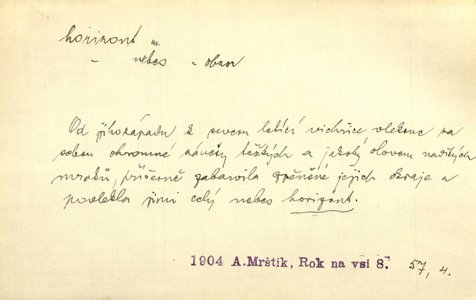 horizont m.
- nebes - obzor
Od jihozápadu k severu letící vichřice, vlekouc za
sebou ohromné závěsy těžkých a jakoby olovem naditých
mraků, příšerně zabarvila zpěněné jejich okraje a
povlekla jimi celý nebes horizont.
1904 A.Mrštík, Rok na vsi 8. 57, 4.